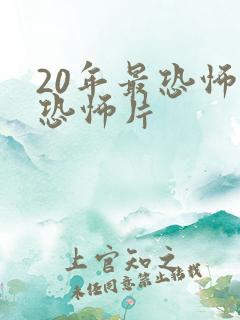 20年最恐怖
恐怖片
上官知之
未经同意禁止转载